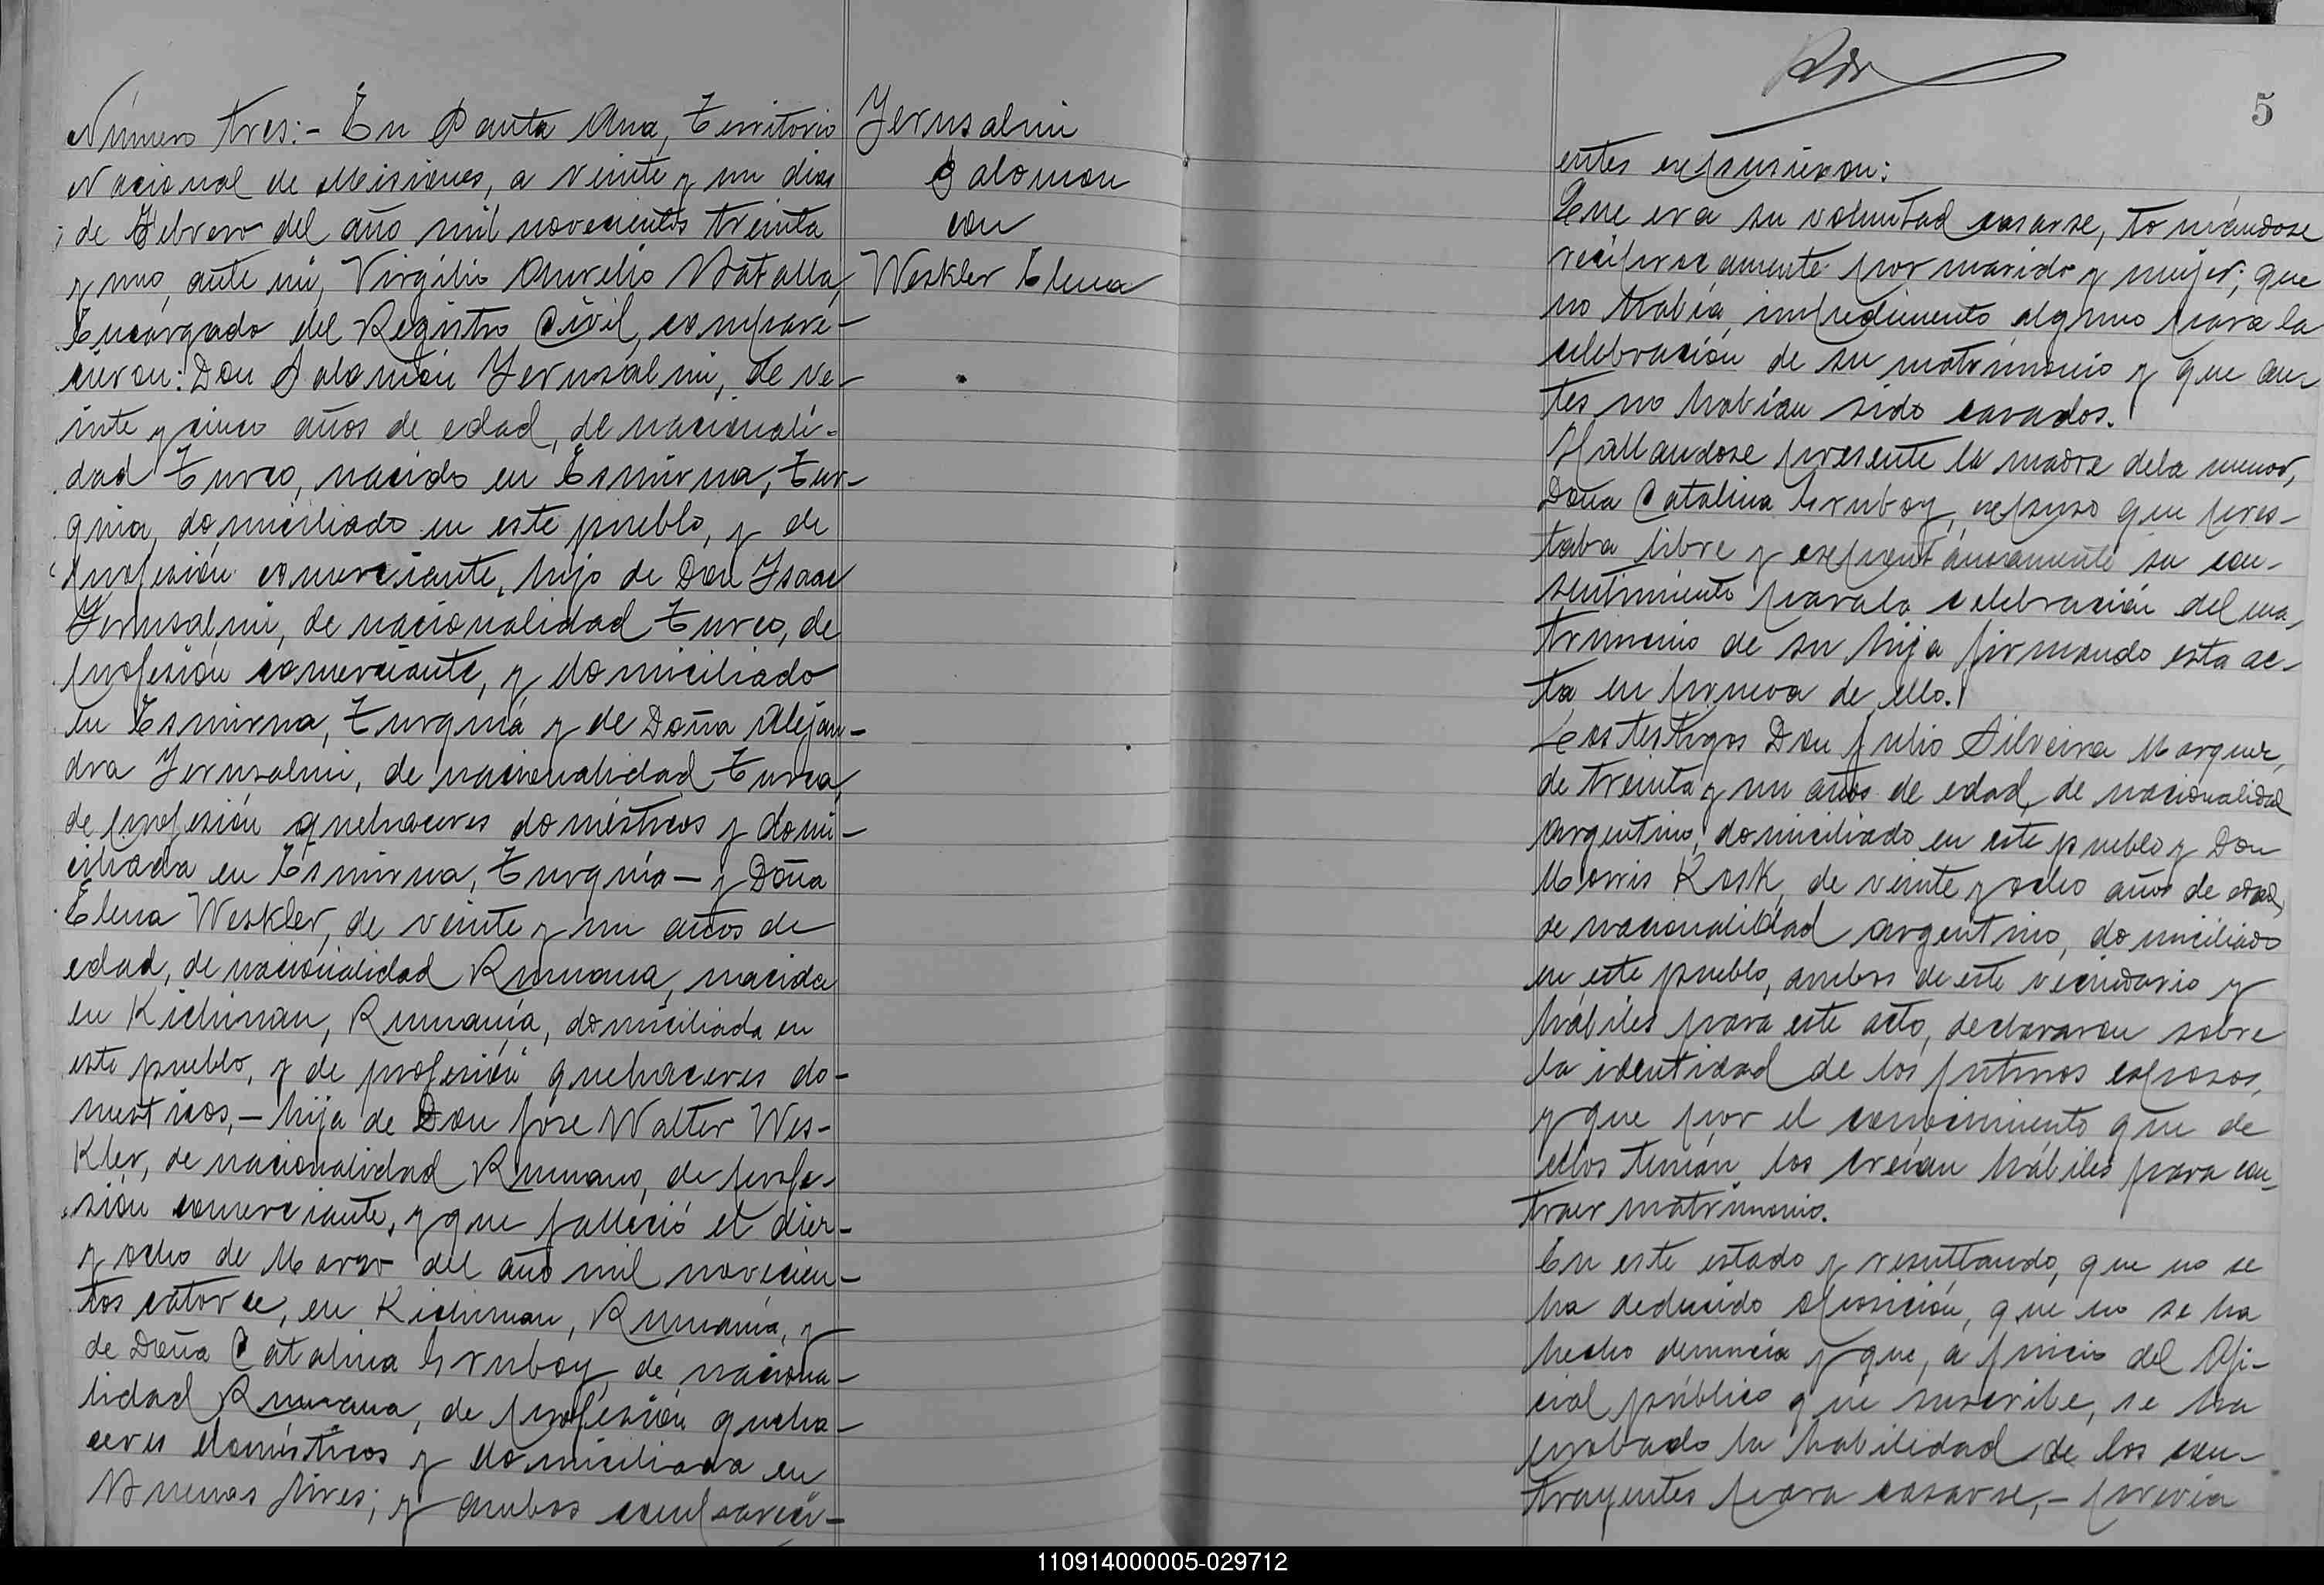 Número tres:- En Santa Ana, Territorio
Nacional de Misiones, a veinte y un dias
de Febrero del año mil novecientos treinta
y uno, ante mi, Virgilio Aurelio Batalla,
Encargado del Registro Civil, compare-
cieron: Don Salomón Yerusalmi, de ve-
inte y cinco años de edad, de nacionali-
dad Turco, nacido en Esmirna, Tur-
quia, domiciliado en este pueblo, y de
profesión comerciante, hijo de Don Isaac
Yerusalmi, de nacionalidad Turco, de
profesión comerciante, y domiciliado
en Esmirna, Turquia y de Doña Alejan-
dra Yerusalmi, de nacionalidad Turca,
de profesión quehaceres domésticos y domi-
ciliada en Esmirna, Turquía - y Doña
Elena Weskler, de veinte y un años de
edad, de nacionalidad Rumana, nacida
en Kichinau, Rumania, domiciliada en
este pueblo, y de profesión quehaceres do-
mesticos, - hija de Don Jose Walter Wes-
kler, de nacionalidad Rumano, de profe-
sión comerciante, y que falleció el diez
y ocho de Marzo del año mil novecien-
tos catorce, en Kichinau, Rumania, y
de Doña Catalina Gruboy, de naciona-
lidad Rumana, de profesión queha-
ceres domésticos y domiciliada en
Buenos Aires; y ambos compareci-
Yerusalmi
Salomon
con
Weskler Elena
5
entes expusieron:
Que era su voluntad casarse, tomándose
reciprocamente por marido y mujer; que
no había impedimento alguno para la
celebración de su matrimonio y que an-
tes no habían sido casados.
Hallandose presente la madre dela menor,
Doña Catalina Gruboy, expuso que pres-
taba libre y expontáneamente su con-
sentimiento para la celebración del ma-
trimonio de su hija firmando esta ac-
ta en prueva de ello.
Los testigos Don Julio Silveira Marquez,
de treinta y un años de edad, de nacionalidad
Argentino, domiciliado en este pueblo y Don
Morris Rosk, de veinte y ocho años de edad,
de nacionalidad Argentino, domiciliado
en este pueblo, ambos de este vecindario y
hábiles para este acto, declararon sobre
la identidad de los futuros esposos,
y que por el conocimiento que de
ellos tenían los creían hábiles para con-
traer matrimonio.
En este estado y resultando, que no se
ha deducido oposición, que no se ha
hecho denuncia y que, a juicio del Ofi-
cial público que suscribe, se ha
probado la habilidad de los con-
trayentes para casarse, - previa
110914000005-029712